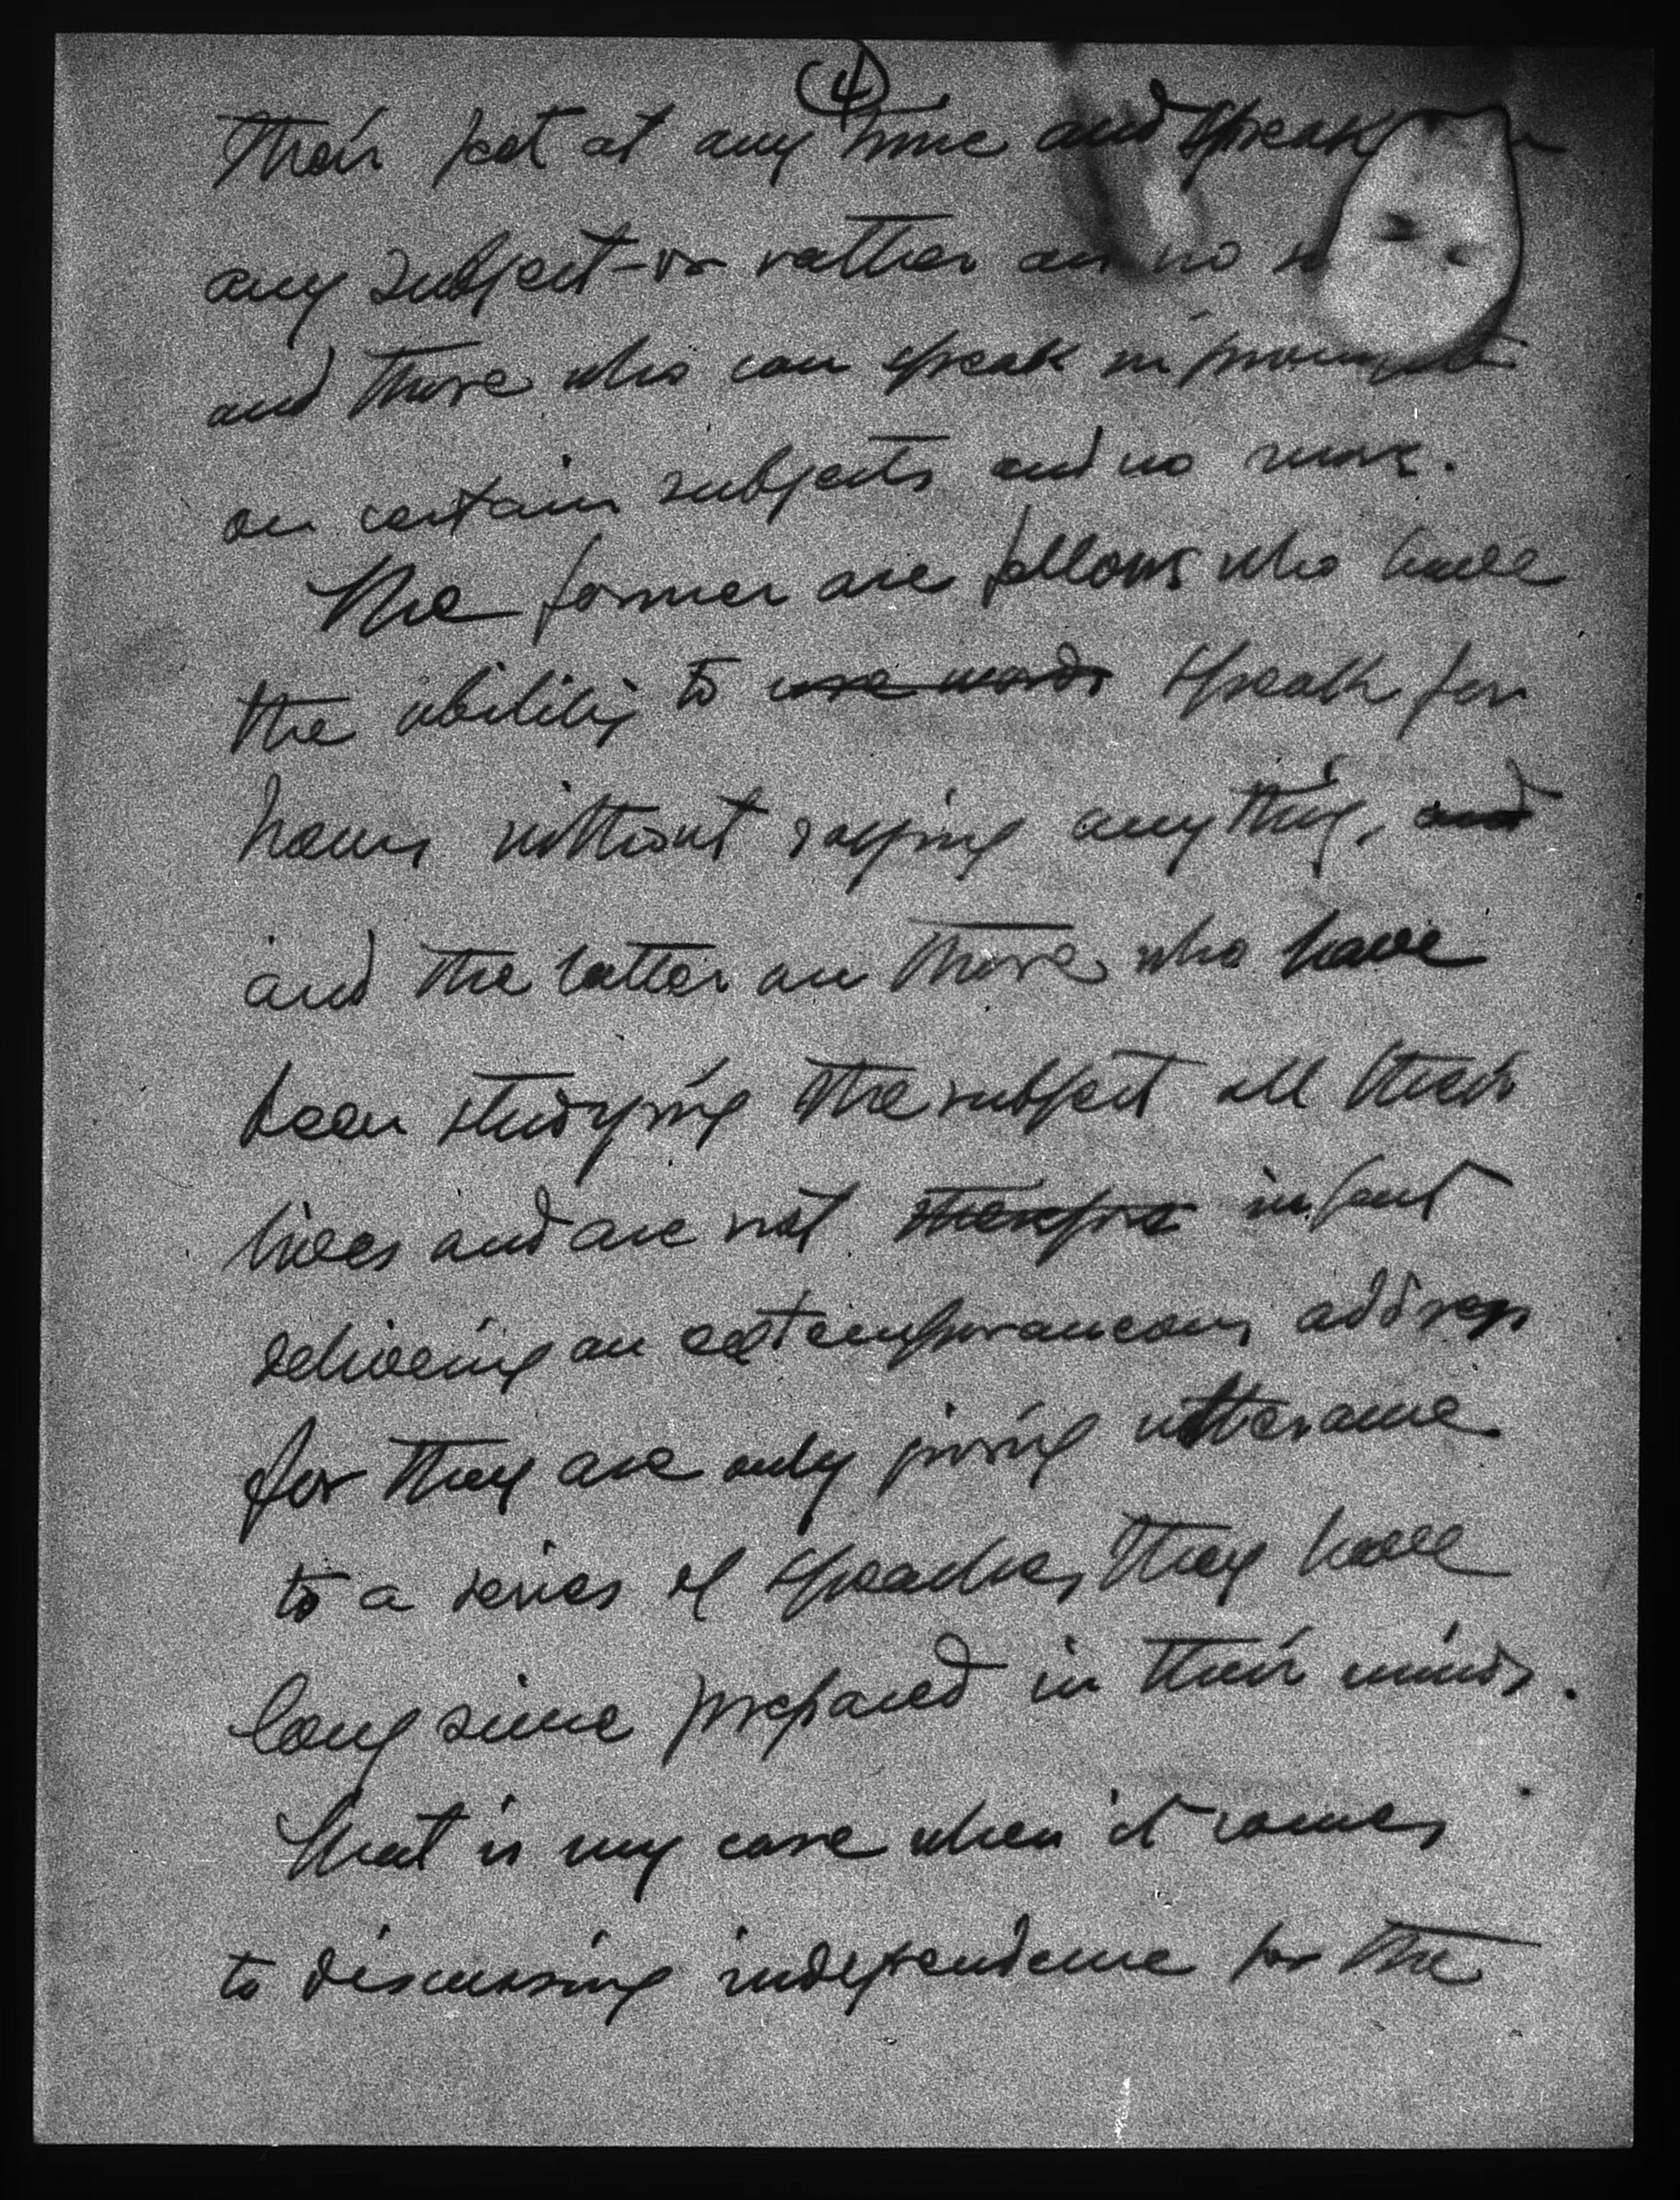 (4)
their feet at any time and speak
any subject – or rather on no
and those who can speak impromptu
on certain subjects and no more.
The former are fellows who have
the ability to use words speak for
hours without saying anything, and
and the latter are those who have
been studying the subject all their
lives and are not therefore in fact
delivering an extemporaneous address
for they are only giving utterance
to a series of speeches they have
long since prepared in their minds.
That is my case when it comes
to discussing independence for the